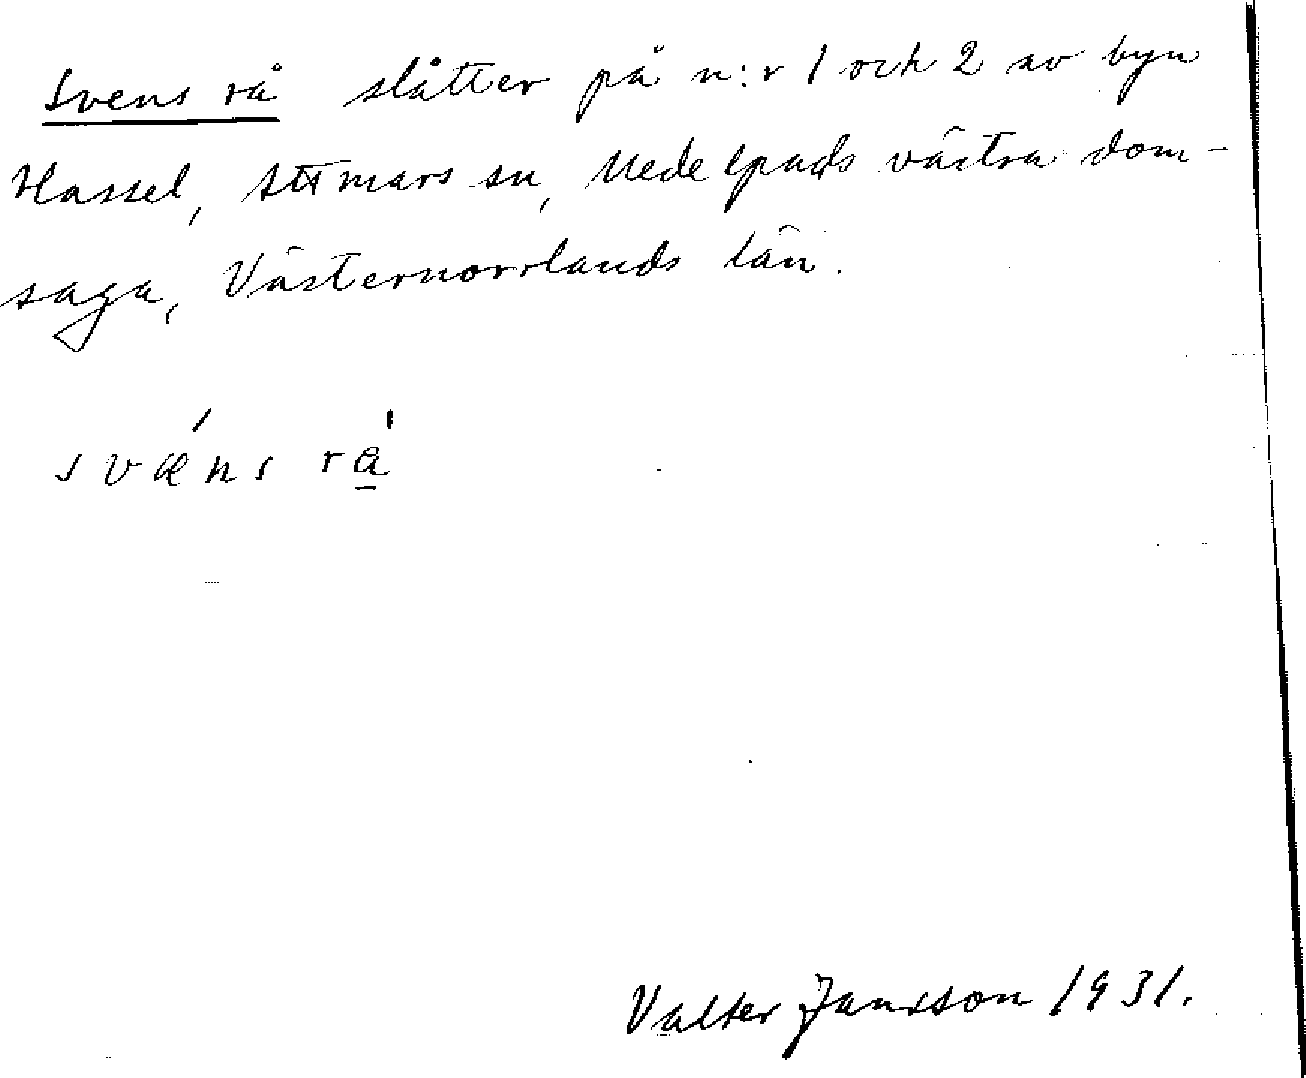 Svens rå slåtter på n:r 1 och 2 av byn
Hassel, Attmars sn, Medelpads västra dom-
saga, Västernorrlands län.
svæ´ns rå̲ˈ
Valter Jansson 1931.